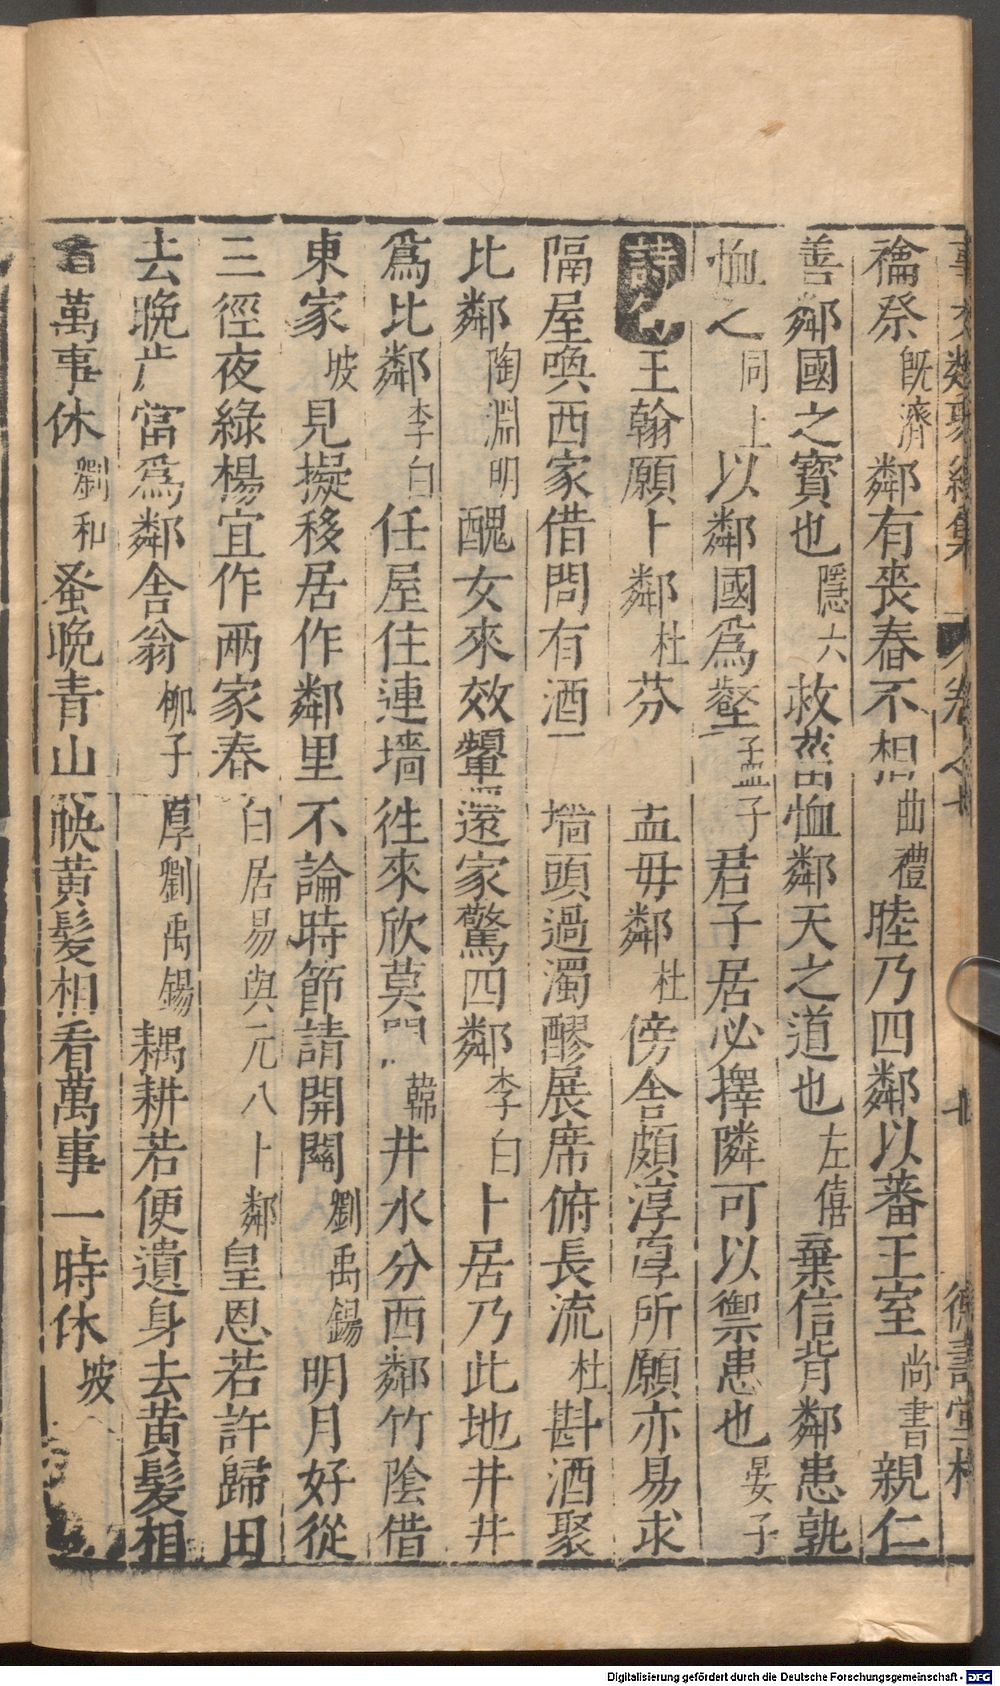 禴祭既濟鄰有喪舂不相曲禮睦乃四鄰以蕃王室尚書親仁
善鄰國之寶也隱六救菑恤鄰天之道也左僖棄信背鄰患孰
恤之同上以鄰國爲壑孟子君子居必擇隣可以禦患也晏子
詩句王翰願卜鄰杜芬 孟毋鄰杜傍舍頗淳厚所願亦易求
隔屋喚西家借問有酒 墻頭過濁醪展席俯長流杜斟酒聚
比鄰陶淵明醜女來效顰還家驚四鄰李白卜居乃此地井井
爲比鄰李白任屋住連墻徃來欣莫間韓井水分西鄰竹陰借
東家坡見擬移居作鄰里不論時節請開關劉禹錫明月好從
三徑夜綠楊宜作兩家春白居易與元八卜鄰皇恩若許歸田
去晩歲當爲鄰舎翁柳子厚劉禹錫耦耕若便遺身去黄髮相
看萬事休劉和蚤晩青山映黄髪相看萬事一時休坡
徳壽堂梓
Digitalisierung gefördert durch die Deutsche Forschungsgemeinschaft - DFG